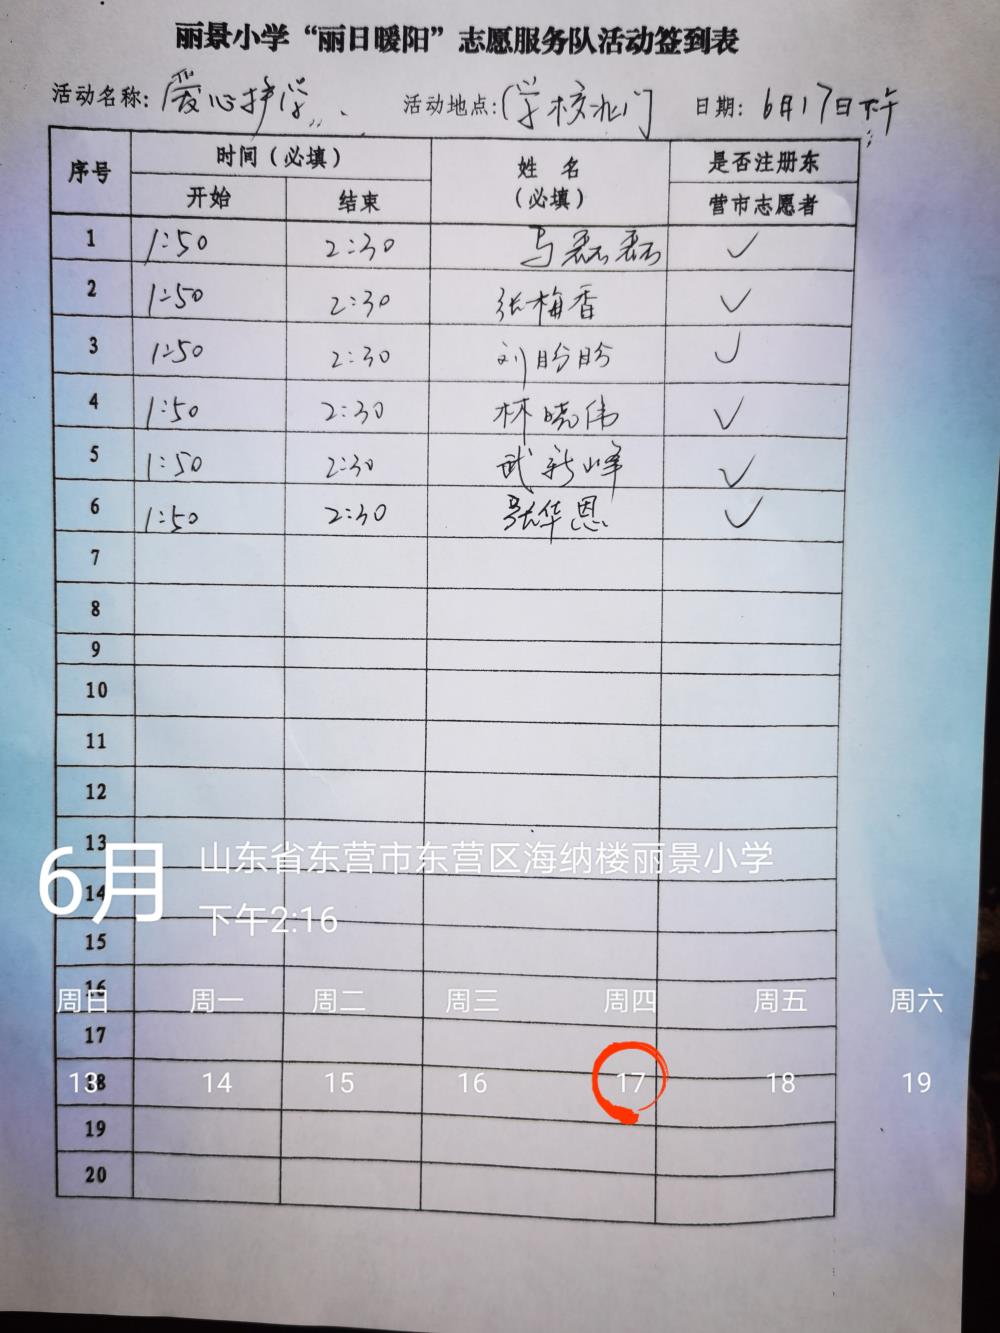 丽景小学“丽日暖阳”志愿服务队活动签到表
活动名称：爱心护学 活动地点：学校北门 日期：6月17日下午
序号 时间（必填） 姓名（必填） 是否注册东营市志愿者
开始 结束
1 1:50 2:30 马磊磊 ✓
2 1:50 2:30 张梅香 ✓
3 1:50 2:30 刘盼盼 ✓
4 1:50 2:30 林晓伟 ✓
5 1:50 2:30 武新峰 ✓
6 1:50 2:30 张华恩 ✓
7
8
9
10
11
12
13
14
15
16
17
18
19
20
6月 山东省东营市东营区海纳楼丽景小学
下午2:16
周日 周一 周二 周三 周四 周五 周六
13 14 15 16 17 18 19